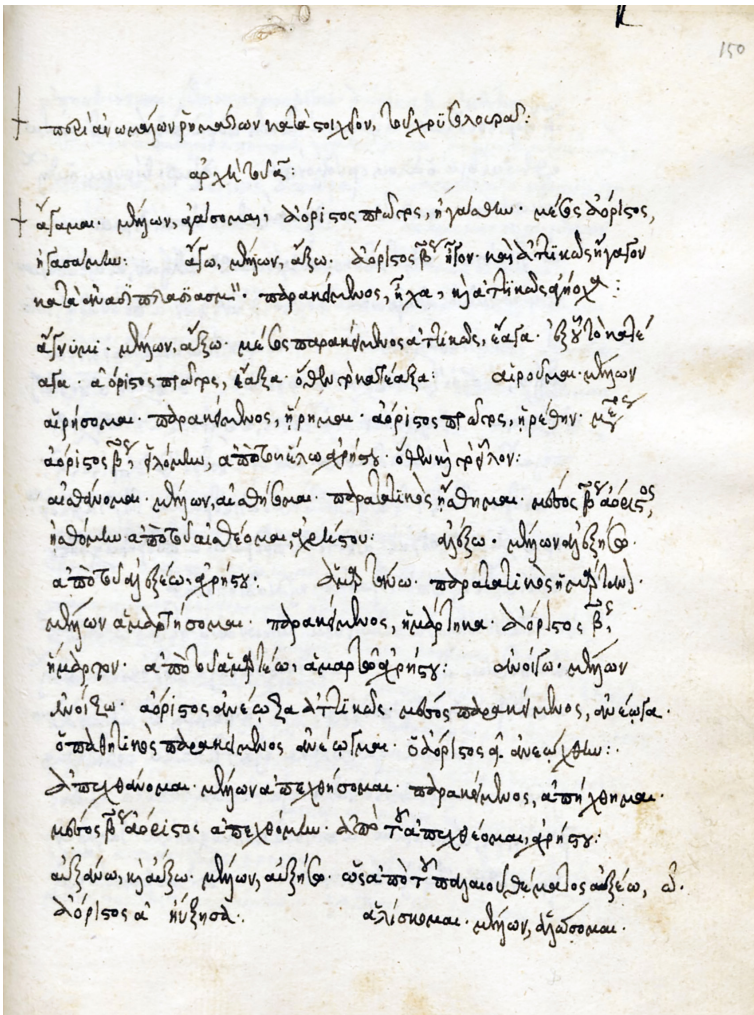 150
περὶ ἀνωμάλων ῥημάτων κατὰ στοιχεῖον, τοῦ χρυσολωρᾶ:
ἀρχὴ τοῦ ᾱ:
ἄγαμαι· μέλλων, ἀγάσομαι, ἀόριστος πρῶτος, ἠγάσθην· μέσος ἀόριστος,
ἠγασάμην: ἄγω, μέλλων, ἄξω· ἀόριστος β̄ος ἦγον· καὶ ἀττικῶς ἤγαγον
κατὰ ἀναδιπλασιασμόν· παρακείμενος, ἦχα, καὶ ἀττικῶς ἀγήοχα:
ἄγνυμι· μέλλων, ἄξω· μέσος παρακείμενος ἀττικῶς, ἔαγα· ἐξ οὗ τὸ κατέ
αγα· ἀόριστος πρῶτος, ἔαξα· ὅθεν τὸ κατέαξα: αἱροῦμαι· μέλλων
αἱρήσομαι· παρακείμενος, ᾕρημαι· ἀόριστος πρῶτος, ᾑρέθην·
ἀόριστος β̄ος, εἱλόμην, ἀπὸ τοῦ ἕλω ἀχρήστου· ὅθεν καὶ τὸ εἷλον:
αἰσθάνομαι· μέλλων, αἰσθήσομαι· παρατατικὸς ᾔσθημαι· μέσος β̄ος ἀόριστος,
ᾐσθόμην ἀπὸ τοῦ αἰσθέομαι, ἀχρήστου: ἀλέξω· μέλλων ἀλεξήσω·
ἀπὸ τοῦ ἀλεξέω, ἀχρήστου: παρατατικὸς
μέλλων ἁμαρτήσομαι· παρακείμενος, ἡμάρτηκα· ἀόριστος β̄ος,
ἥμαρτον· ἀπὸ τοῦ ἁμαρτέω, ἁμαρτῶ ἀχρήστου: ἀνοίγω· μέλλων
ἀνοίξω· ἀόριστος ἀνέῳξα ἀττικῶς· μέσος παρακείμενος, ἀνέῳγα·
ὁ παθητικὸς παρακείμενος ἀνέῳγμαι· ὁ ἀόριστος ᾱ ἀνεῴχθην:
ἀπεχθάνομαι· μέλλων ἀπεχθήσομαι· παρακείμενος, ἀπήχθημαι·
μέσος β̄ος ἀόριστος ἀπεχθόμην· ἀπὸ τοῦ ἀπεχθέομαι, ἀχρήστου:
αὐξάνω, καὶ αὔξω· μέλλων, αὐξήσω· ὡς ἀπὸ τοῦ παλαιοῦ θέματος αὐξέω, ῶ·
ἀόριστος ᾱ ηὔξησα: ἁλίσκομαι· μέλλων, ἁλώσομαι·